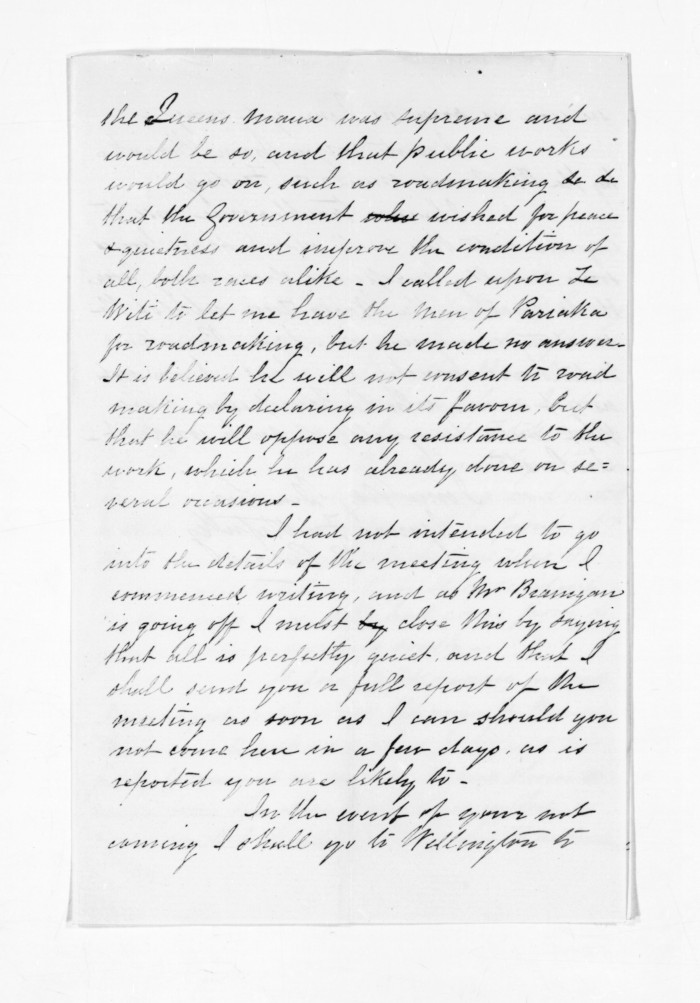 the Queens mana was supreme and
would be so, and that public works
would go on, such as roadmaking &c &c
that the Government wished for peace
& quietness and improve the condition of
all, both races alike - I called upon Te
Witi to let me have the men of Pariaka
for roadmaking, but he made no answer.
It is believed he will not consent to road
making by declaring in its favour, but
that he will oppose any resistance to the
work, which he has already done on se=
veral occasions -
I had not intended to go
into the details of the meeting when I
commenced writing, and as Mr Branigan
is going off I must by close this by saying
that all is perfectly quiet, and that I
shall send you a full report of the
meeting as soon as I can should you
not come here in a few days, as is
reported you are likely to -
In the event of your not
coming I shall go to Wellington to